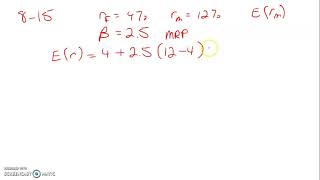 8-15 rf = 4% rm = 12% E(rm)
β = 2.5 MRP
E(r) = 4 + 2.5 (12-4)
RECORDED WITH
SCREENCAST MATIC